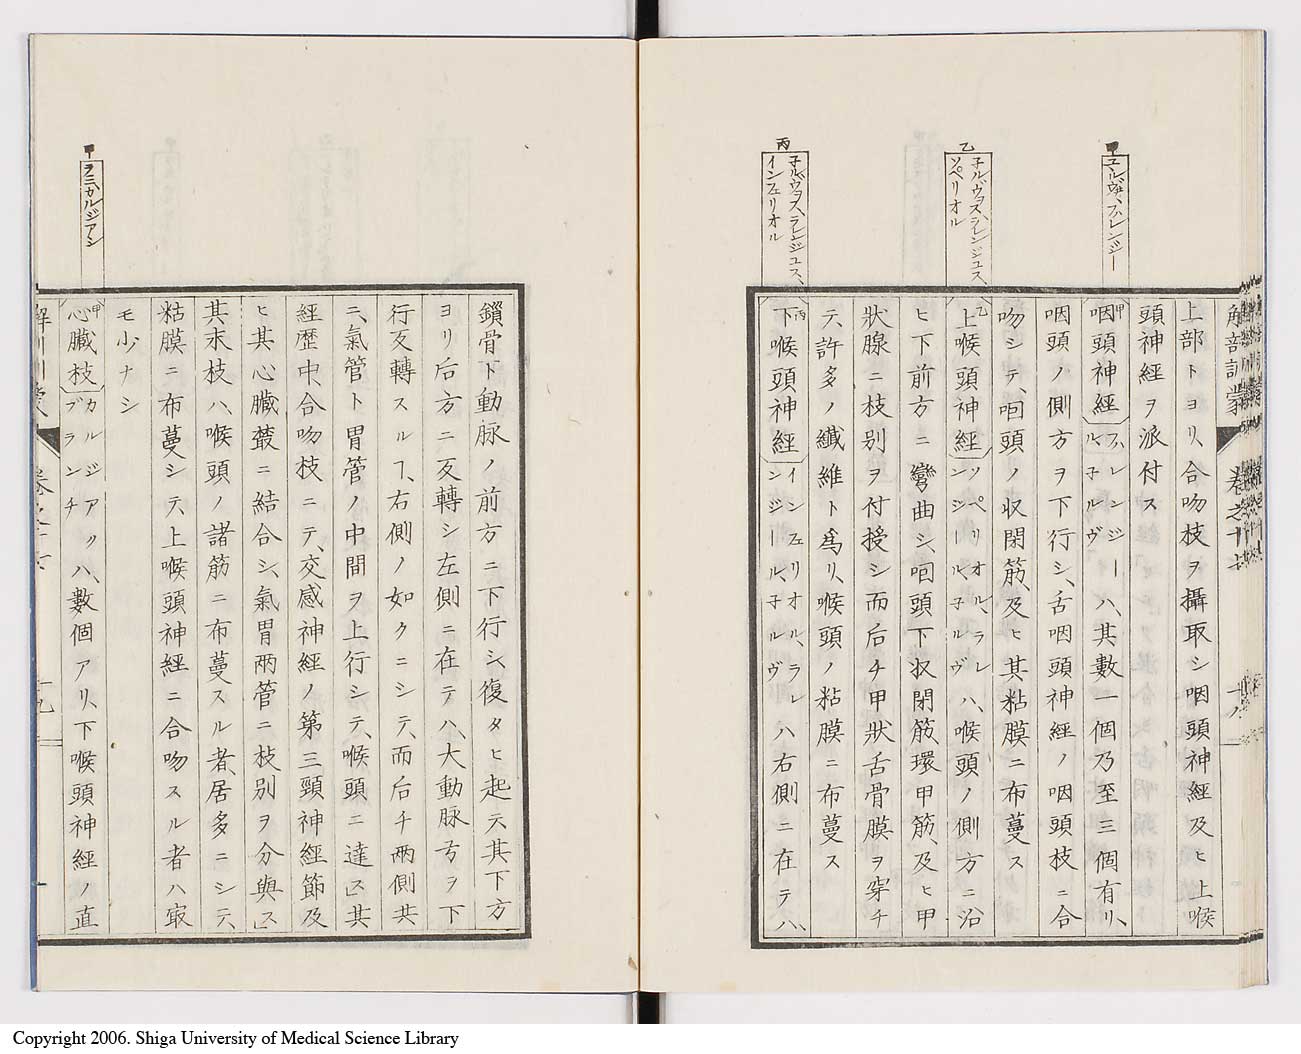 解剖訓蒙 卷之十七 十八
甲
子ルヴヲ、ハレンジー
乙
子ルヴヲス、ラレンジユス、
ソペリオル
丙
子ルヴヲス、ラレンジユス、
インフェリオル
上部トヨリ、合吻枝ヲ攝取シ咽頭神經及ヒ上喉
頭神經ヲ派付ス
甲咽頭神經ハレンジール子ルヴハ、其數一個乃至三個有リ、
咽頭ノ側方ヲ下行シ、舌咽頭神經ノ咽頭枝ニ合
吻シテ、咽頭ノ収閉筋、及ヒ其粘膜ニ布蔓ス
乙上喉頭神經ソペリオル、ラレンジール、子ルヴハ、喉頭ノ側方ニ沿
ヒ下前方ニ彎曲シ、咽頭下収閉筋、環甲筋、及ヒ甲
狀腺ニ枝別ヲ付授シ而后チ甲狀舌骨膜ヲ穿チ
テ、許多ノ纖維ト爲リ、喉頭ノ粘膜ニ布蔓ス
丙下喉頭神經インフェリオル、ラレンジール、子ルヴハ右側ニ在テハ、
鎖骨下動脉ノ前方ニ下行シ、復タヒ起テ其下方
ヨリ后方ニ反轉シ左側ニ在テハ、大動脉方ヲ下
行反轉スルヿ、右側ノ如クニシテ、而后チ兩側共
ニ、氣管ト胃管ノ中間ヲ上行シテ、喉頭ニ達ス」其
經歴中、合吻枝ニテ、交感神經ノ第三頸神經節及
ヒ其心臓叢ニ結合シ、氣胃兩管ニ枝別ヲ分與ス」
其末枝ハ、喉頭ノ諸筋ニ布蔓スル者、居多ニシテ、
粘膜ニ布蔓シテ、上喉頭神經ニ合吻スル者ハ㝡
モ少ナシ
甲心臓枝カルジアッブランチハ、數個アリ、下喉頭神經ノ直
甲
ラミ、カルジアシ
十九
Copyright 2006. Shiga University of Medical Science Library